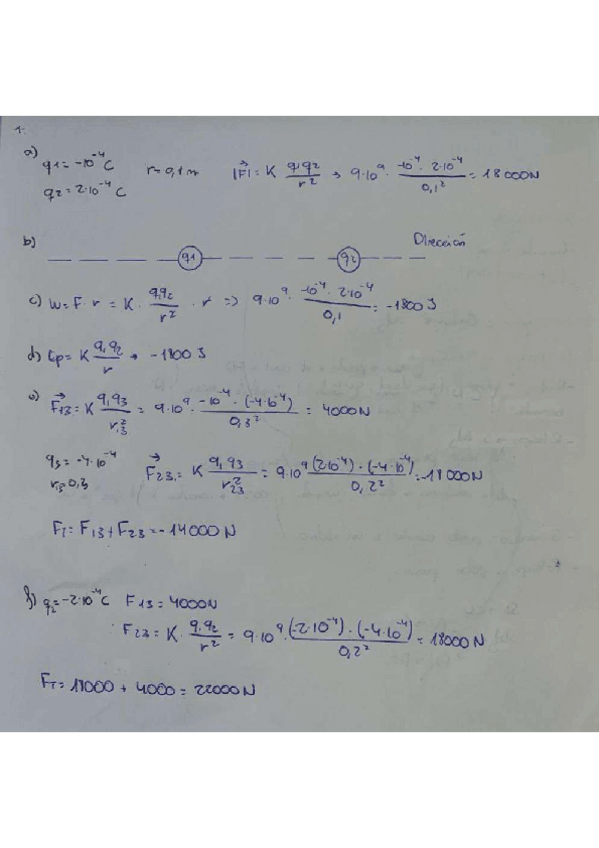 1.
a) q1 = -10⁻⁴ C r = 0,1 m |F⃗| = K q₁q₂/r² → 9·10⁹ · -10⁻⁴ · 2·10⁻⁴/0,1² = 18000N
q2 = 2·10⁻⁴ C
b) q1 q2 Dirección
c) W = F · r = K · q₁q₂/r² · r => 9·10⁹ · -10⁻⁴ · 2·10⁻⁴/0,1 = -1800 J
d) Ep = K q₁q₂/r → -1800 J
e) F⃗13 = K q₁q₃/r₁₃² = 9·10⁹ · -10⁻⁴ · (-4·10⁻⁴)/0,3² = 4000N
q3 = -4·10⁻⁴
r₁₃ = 0,3 F⃗23 = K q₁q₃/r₂₃² = 9·10⁹ (2·10⁻⁴) · (-4·10⁻⁴)/0,2² = -18000N
FT = F13 + F23 = -14000 N
f) q₂ = -2·10⁻⁴ C F13 = 4000N
F23 = K · q₁q₂/r² = 9·10⁹ · (-2·10⁻⁴) · (-4·10⁻⁴)/0,2² = 18000 N
FT = 18000 + 4000 = 22000 N